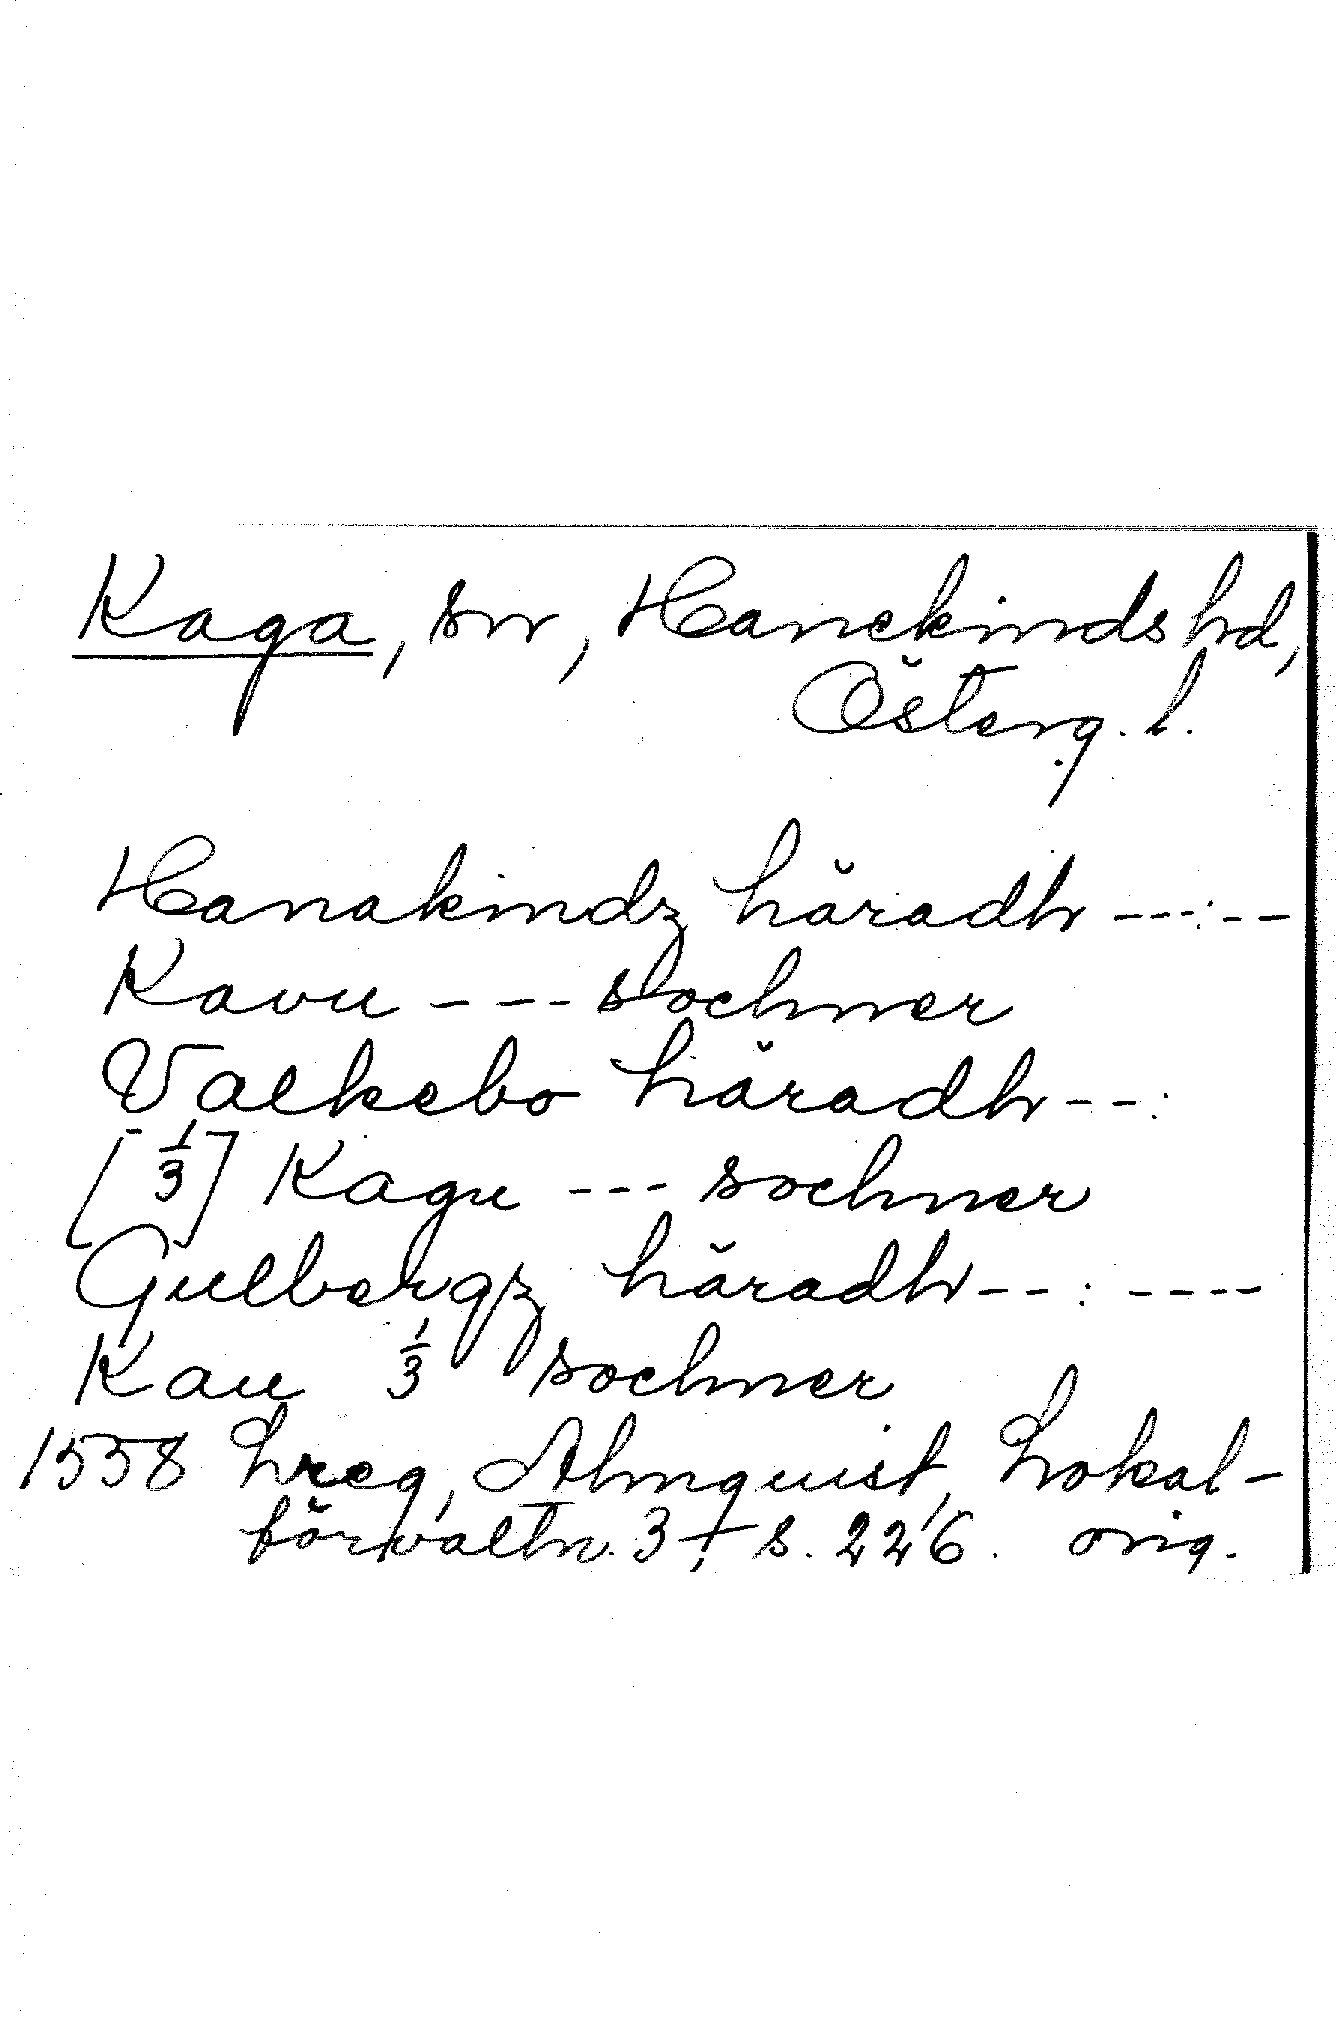 Kaga, sn, Hanekinds hd,
Österg. l.
Hanakindz häradh ---:--
Kavu --- sochner
Valkebo häradh --:
[1/3] Kagu --- sochner
Gulbergz häradh --: ----
Kau 1/3 sochner
1558 Lreg, Almquist, Lokal-
förvaltn. 3+, s. 226. orig.